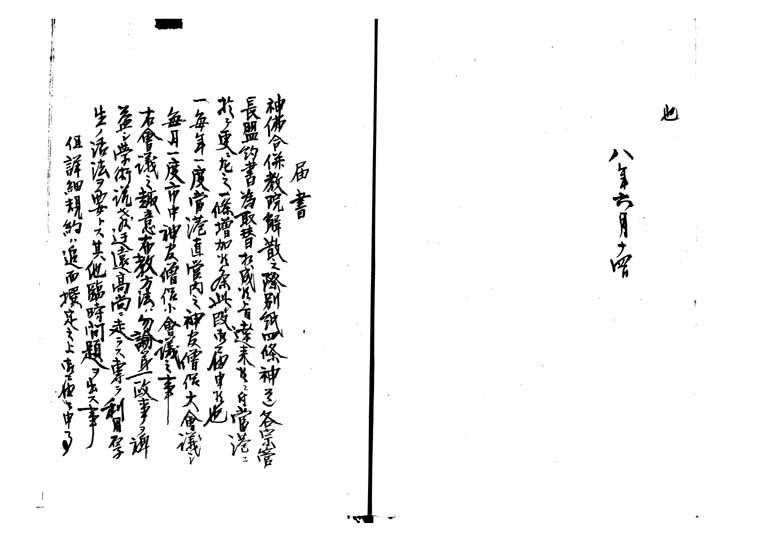 也
八年六月十四日
届書
神佛合併教院解散之際別紙四條神道各宗管
長盟約書為取替相成候旨達来候ニ付當港ニ
於テ更ニ左之一條増加候条此段御届申候也
一毎年一度當港直管内之神友僧侶大會議之
毎月一度市中神友僧侶小會議之事
右會議之趣意布教方法ハ勿論第一政事ヲ裨
益シ学術説教迂遠高尚ニ走ラス専ラ利用厚
生ノ活法ヲ要トス其他臨時問題ヲ出ス事
但詳細規約ハ追而撰定之上御届申